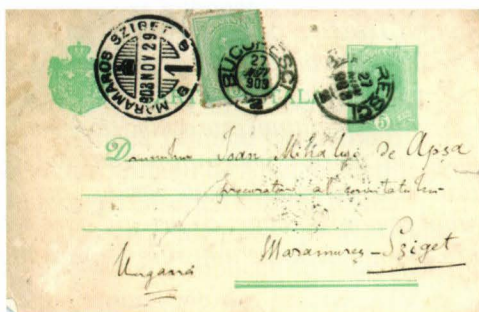 MARAMAROS SZIGET
903 NOV 29
BUCURESCI
27
903
RESCI
27
5
Domnului Ioan Mihalyi de Apșa
procurator al comitatului
Maramureș-Sziget
Ungaria